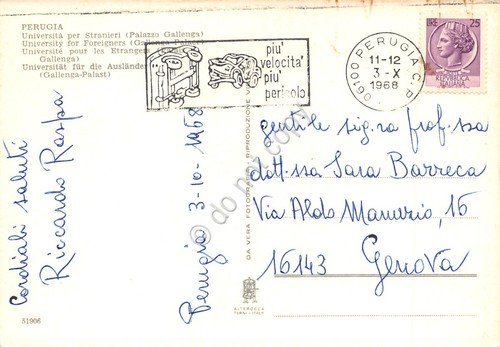 PERUGIA
Università per Stranieri (Palazzo Gallenga)
University for Foreigners (Gallenga-Palace)
Université pour les Etrangers
Gallenga)
Universität für die Ausländer
(Gallenga-Palast)
piu'
velocita'
piu'
pericolo
06100 PERUGIA C.P.
11-12
3-X
1968
LIRE 25
REPUBBLICA
ITALIANA
Cordiali saluti
Riccardo Raspa
Perugia 3-10-1968
gentile sig.ra prof.ssa
dott.ssa Sara Barreca
Via Aldo Manuzio, 16
16143 Genova
DA VERA FOTOGRAFIA
RIPRODUZIONE
ALTEROCCA
TERNI - ITALY
51906